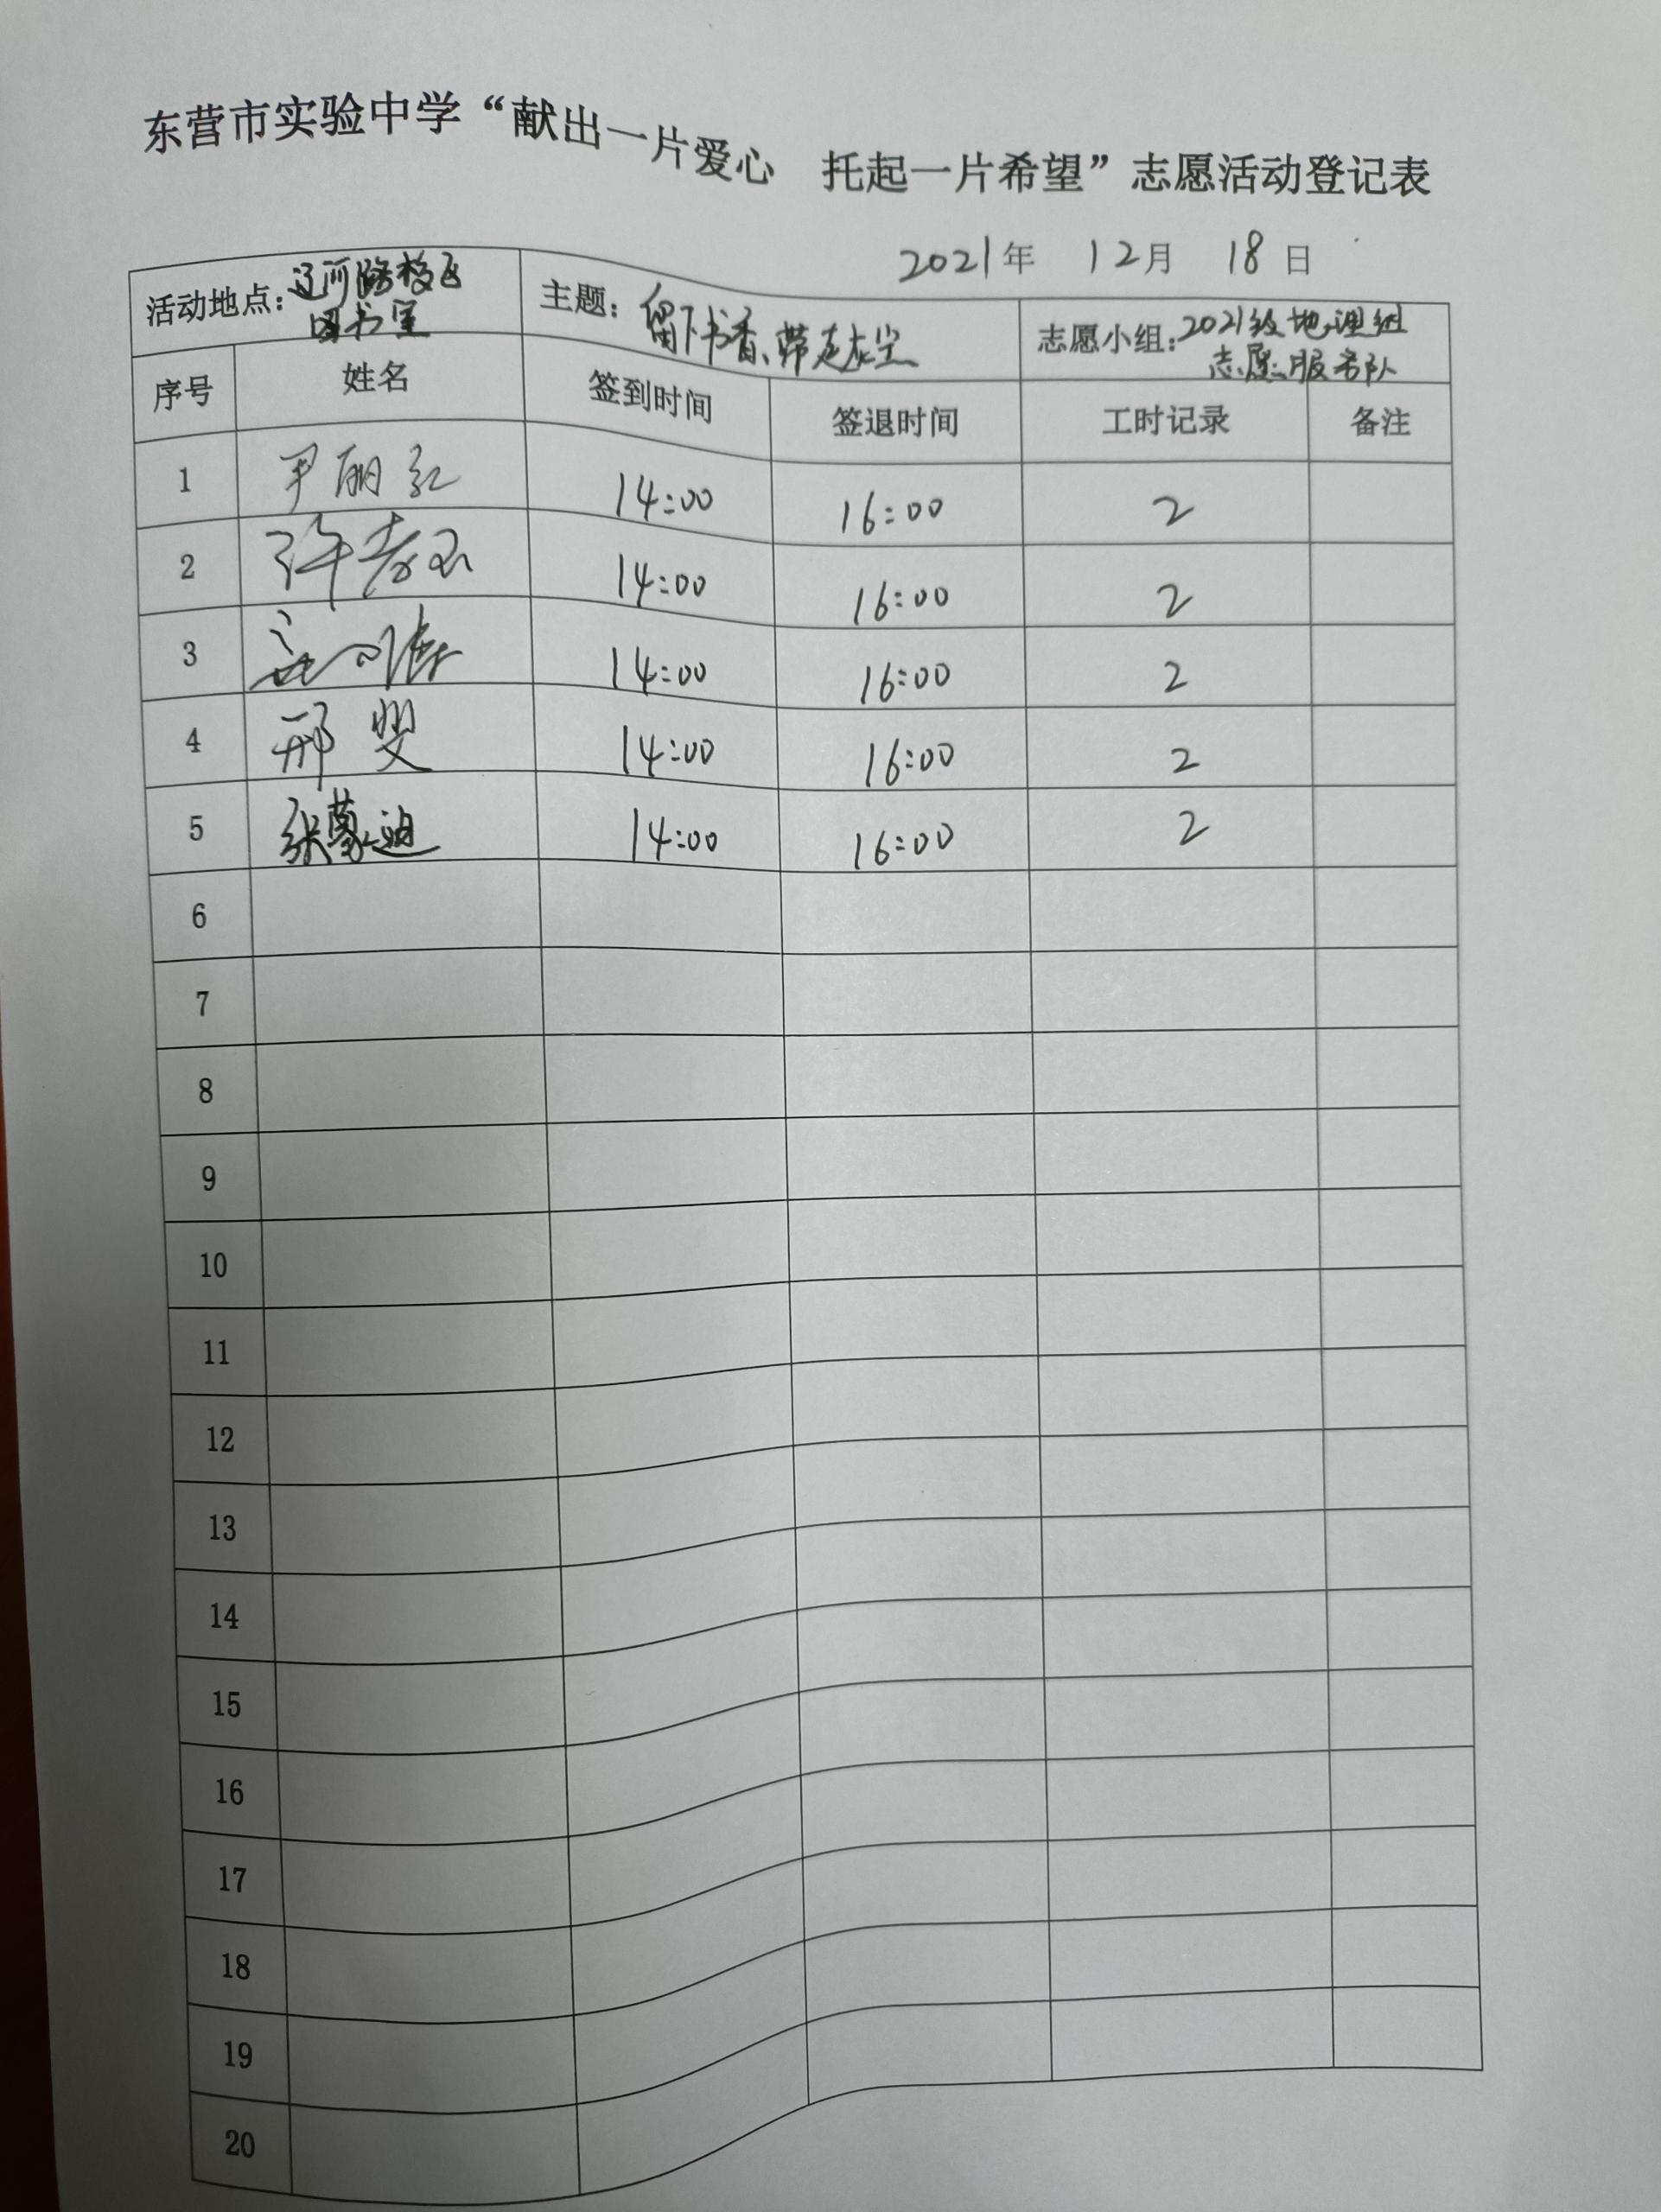 东营市实验中学“献出一片爱心 托起一片希望”志愿活动登记表
2021年 12月 18日
活动地点：辽河路校区图书室 主题：留下书香、带走灰尘 志愿小组：2021级地理组志愿服务队
序号 姓名 签到时间 签退时间 工时记录 备注
1 尹丽红 14:00 16:00 2
2 许孝玉 14:00 16:00 2
3 14:00 16:00 2
4 邢斐 14:00 16:00 2
5 张蒙迪 14:00 16:00 2
6
7
8
9
10
11
12
13
14
15
16
17
18
19
20